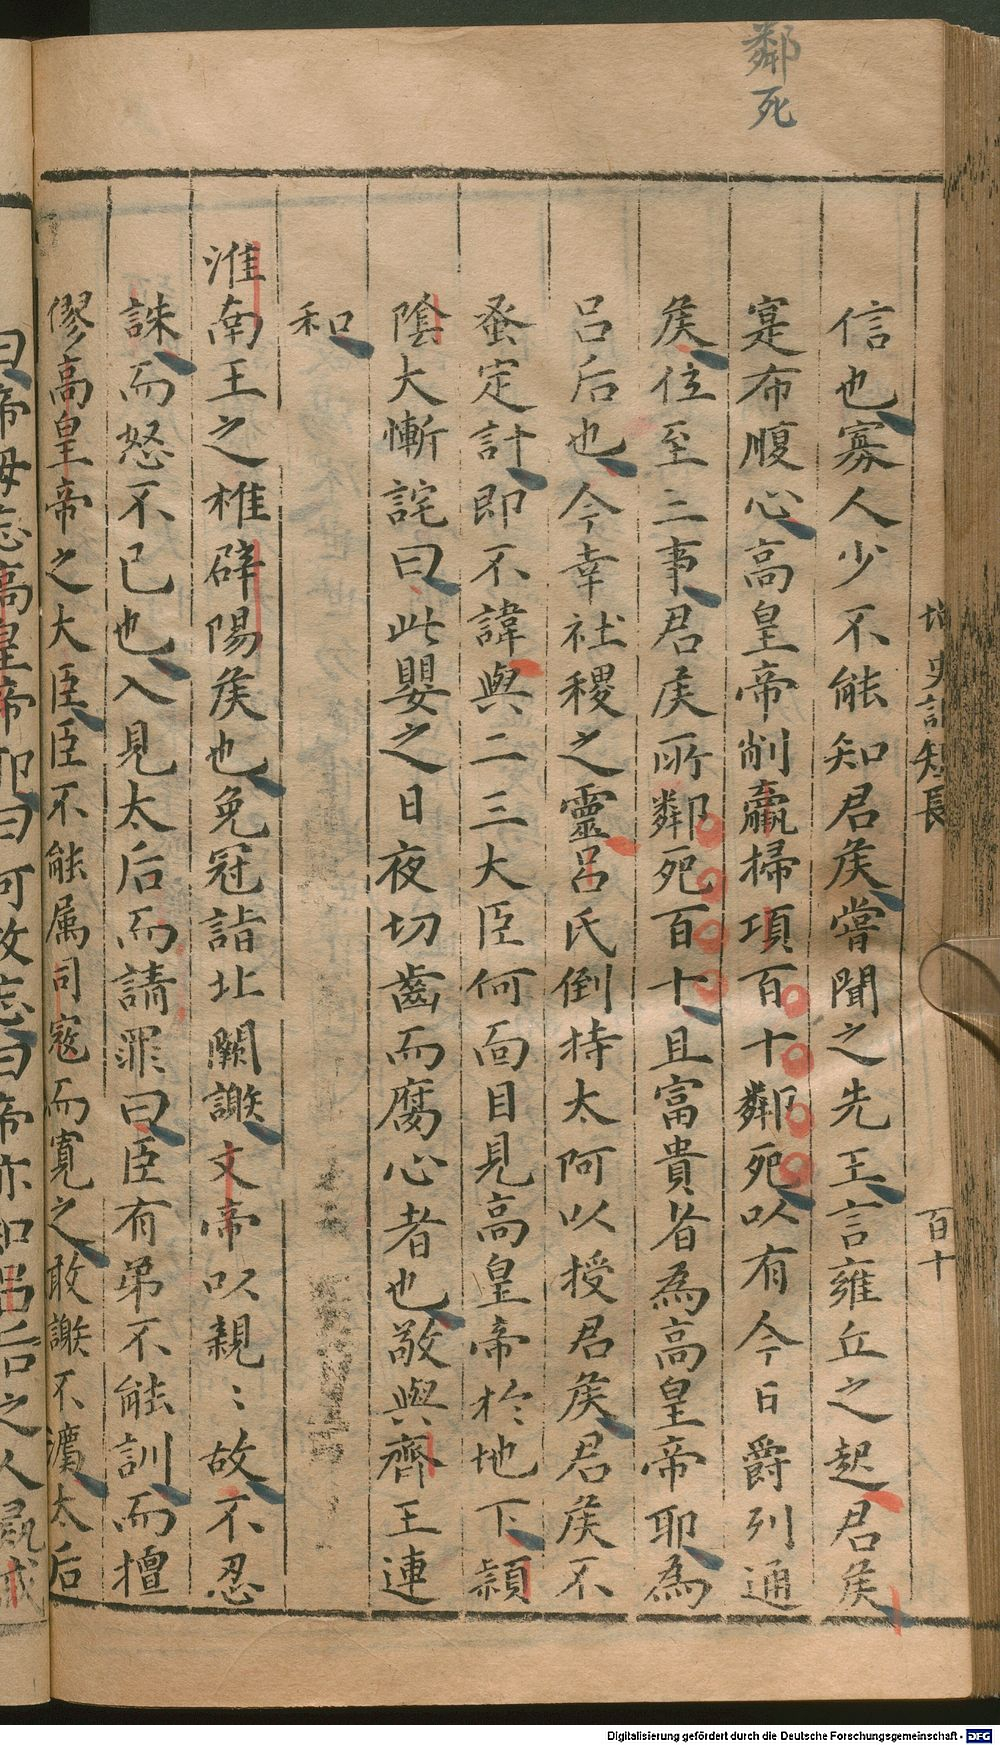 鄰死
増史記短長
百十
信也寡人少不能知君侯嘗聞之先王言雍丘之起君侯
寔布腹心高皇帝削嬴掃項百十鄰死以有今日爵列通
侯位至三事君侯所鄰死百十且富貴者為高皇帝耶為
呂后也今幸社稷之靈呂氏倒持太阿以授君侯君侯不
蚤定計即不諱與二三大臣何面目見高皇帝於地下潁
陰大慚詫曰此嬰之日夜切齒而腐心者也敬與齊王連
和
淮南王之椎辟陽侯也免冠詣北闕謝文帝以親〻故不忍
誅而怒不已也入見太后而請罪曰臣有弟不能訓而擅
僇高皇帝之大臣臣不能属司寇而寛之敢謝不瀆太后
曰帝毋忘高皇帝耶曰何敢忘曰帝亦知呂后之人彘戚
Digitalisierung gefördert durch die Deutsche Forschungsgemeinschaft - DFG